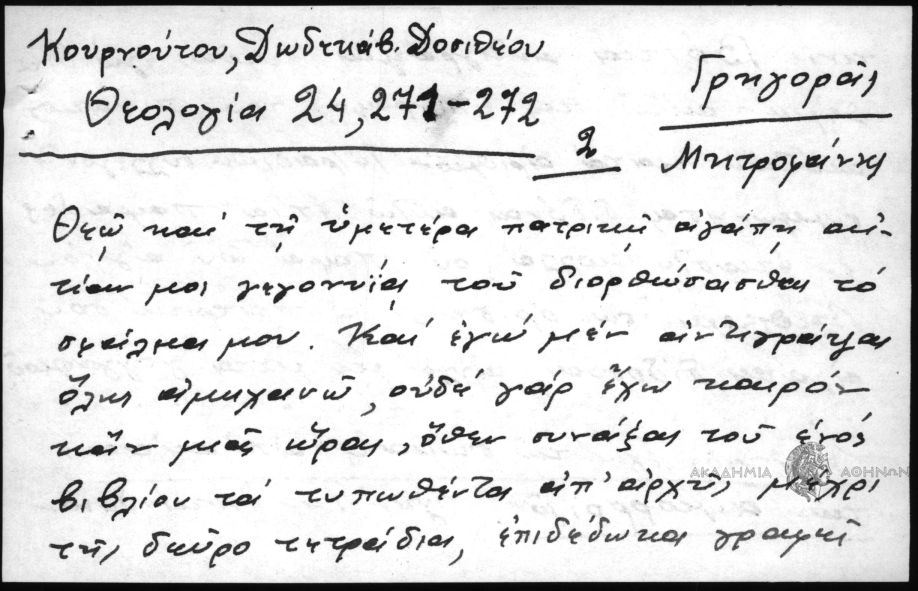 Κουρνούτου, Δωδεκάβ. Δοσιθέου
Θεολογία 24, 271-272
Γρηγοράς
2
Μητροφάνης
Θεῷ καὶ τῇ ὑμετέρᾳ πατρικῇ ἀγάπῃ αἰ-
τίαν μοι γεγονυίᾳ τοῦ διορθώσασθαι τό
σφάλμα μου. Καί ἐγώ μέν ἀντιγράψαι
ὅλης ἀμηχανῶ, οὐδέ γάρ ἔχω καιρόν
κἄν μιᾶς ὥρας, ὅθεν συνάξας τοῦ ἑνός
ΑΚΑΔΗΜΙΑ ΑΘΗΝΩΝ
βιβλίου τά τυπωθέντα ἀπ' ἀρχῆς μέχρι
τῆς δεῦρο τετράδια, ἐπιδέδωκα γραφῇ